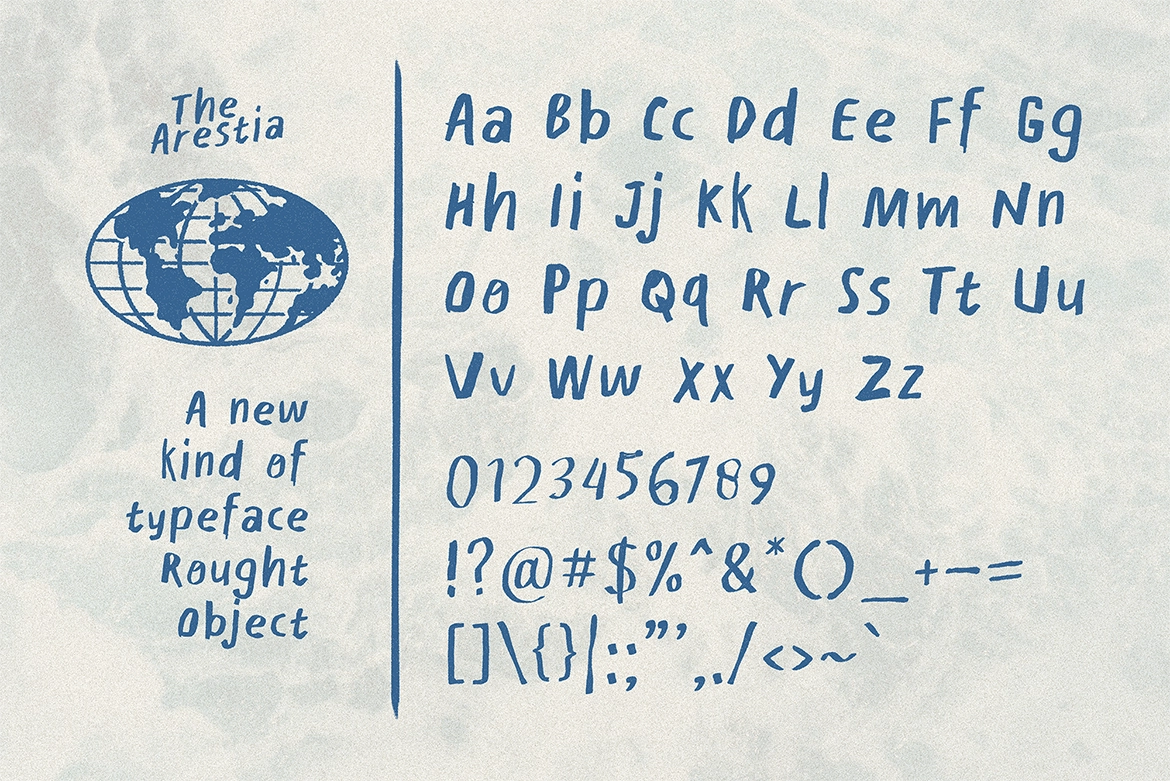 The
Arestia
A new
kind of
typeface
Rought
Object
Aa Bb Cc Dd Ee Ff Gg
Hh Ii Jj Kk Ll Mm Nn
Oo Pp Qq Rr Ss Tt Uu
Vv Ww Xx Yy Zz
0123456789
!?@#$%^&*()_+−=
[]\{}|:;”’,./<>~`